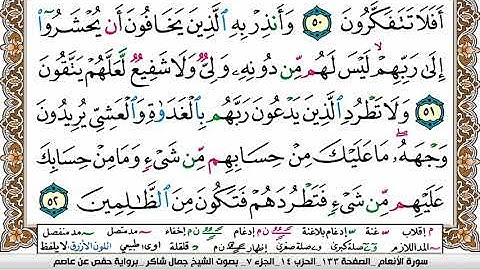 أَفَلَا تَتَفَكَّرُونَ ٥٠ وَأَنذِرْ بِهِ الَّذِينَ يَخَافُونَ أَن يُحْشَرُوٓا
إِلَىٰ رَبِّهِمْ ۙ لَيْسَ لَهُم مِّن دُونِهِۦ وَلِىٌّ وَلَا شَفِيعٌ لَّعَلَّهُمْ يَتَّقُونَ
٥١ وَلَا تَطْرُدِ الَّذِينَ يَدْعُونَ رَبَّهُم بِالْغَدَوٰةِ وَالْعَشِىِّ يُرِيدُونَ
وَجْهَهُۥ ۖ مَا عَلَيْكَ مِنْ حِسَابِهِم مِّن شَىْءٍ وَمَا مِنْ حِسَابِكَ
عَلَيْهِم مِّن شَىْءٍ فَتَطْرُدَهُمْ فَتَكُونَ مِنَ الظَّـٰلِمِينَ ٥٢
م إقلاب غنة إدغام بلاغنة إدغام إخفاء مد متصل مد منفصل
المد اللازم صلة كبرى صلة صغرى إظهار قلقلة اوى: طبيعي اللون الأزرق: لا يلفظ
سورة الأنعام _ الصفحة ١٣٣ _ الحزب ١٤ _ الجزء ٧ _ بصوت الشيخ جمال شاكر _ برواية حفص عن عاصم